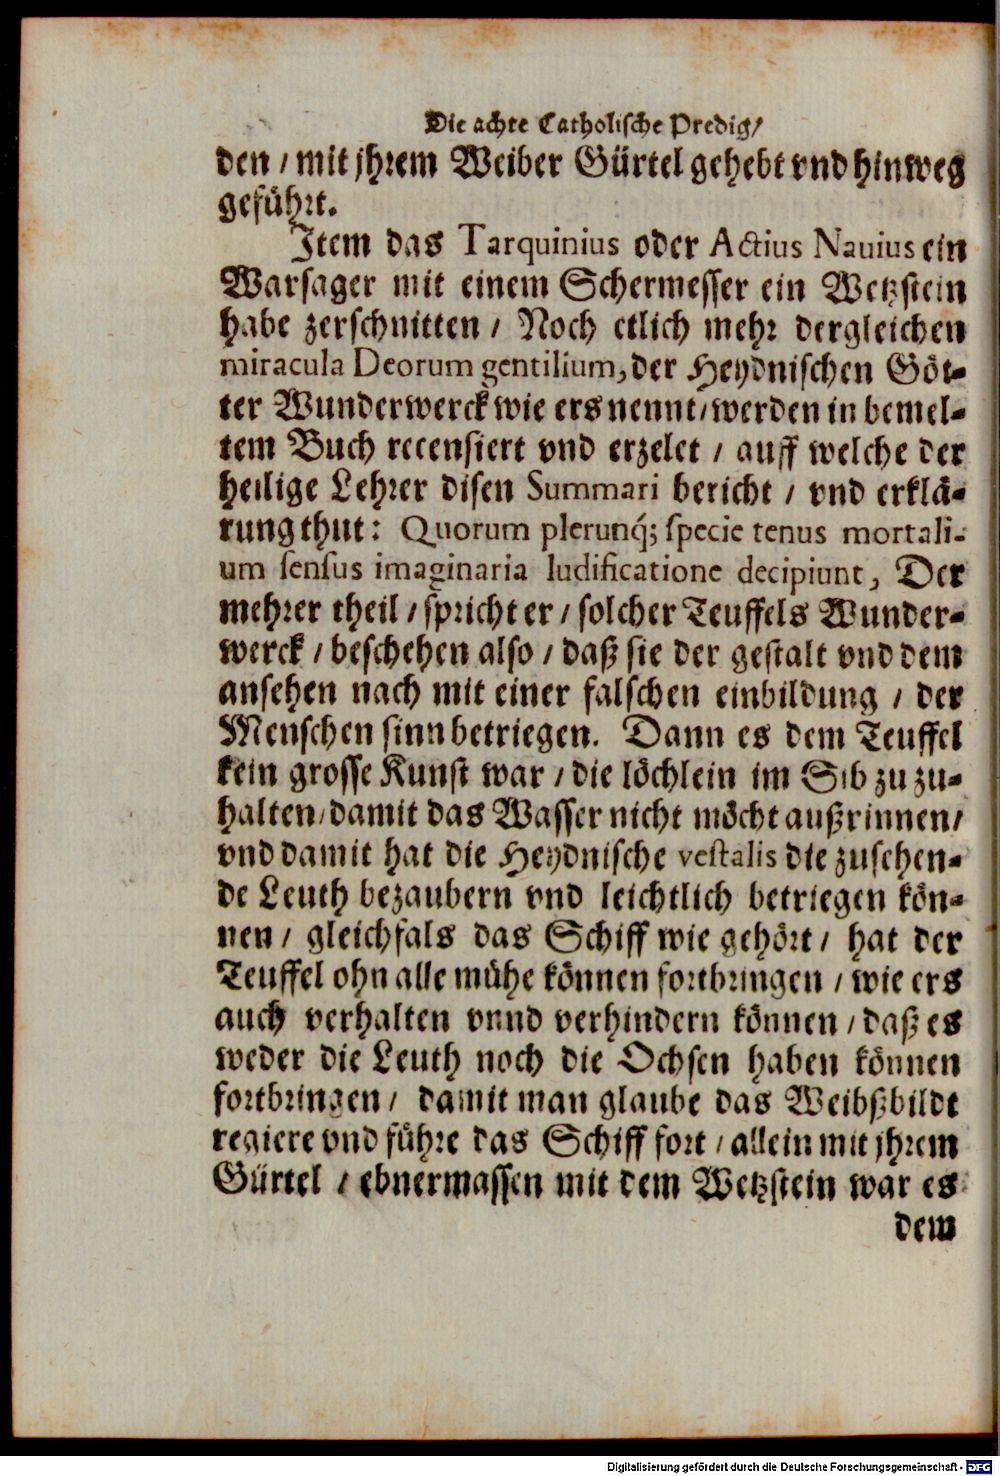 Die achte Catholische Predig/
den / mit jhrem Weiber Gürtel gehebt vnd hinweg
geführt.
Item das Tarquinius oder Actius Nauius ein
Warsager mit einem Schermesser ein Wetzstein
habe zerschnitten / Noch etlich mehr dergleichen
miracula Deorum gentilium, der Heydnischen Göt-
ter Wunderwerck wie ers nennt/werden in bemel-
tem Buch recensiert vnd erzelet / auff welche der
heilige Lehrer disen Summari bericht / vnd erklä-
rung thut: Quorum plerunq́; specie tenus mortali-
um sensus imaginaria ludificatione decipiunt, Der
mehrer theil / spricht er / solcher Teuffels Wunder-
werck / beschehen also / daß sie der gestalt vnd dem
ansehen nach mit einer falschen einbildung / der
Menschen sinn betriegen. Dann es dem Teuffel
kein grosse Kunst war / die löchlein im Sib zu zu-
halten/damit das Wasser nicht möcht außrinnen/
vnd damit hat die Heydnische vestalis die zusehen-
de Leuth bezaubern vnd leichtlich betriegen kön-
nen / gleichfals das Schiff wie gehört / hat der
Teuffel ohn alle mühe können fortbringen / wie ers
auch verhalten vnnd verhindern können / daß es
weder die Leuth noch die Ochsen haben können
fortbringen / damit man glaube das Weibßbildt
regiere vnd führe das Schiff fort / allein mit jhrem
Gürtel / ebnermassen mit dem Wetzstein war es
dem
Digitalisierung gefördert durch die Deutsche Forschungsgemeinschaft - DFG